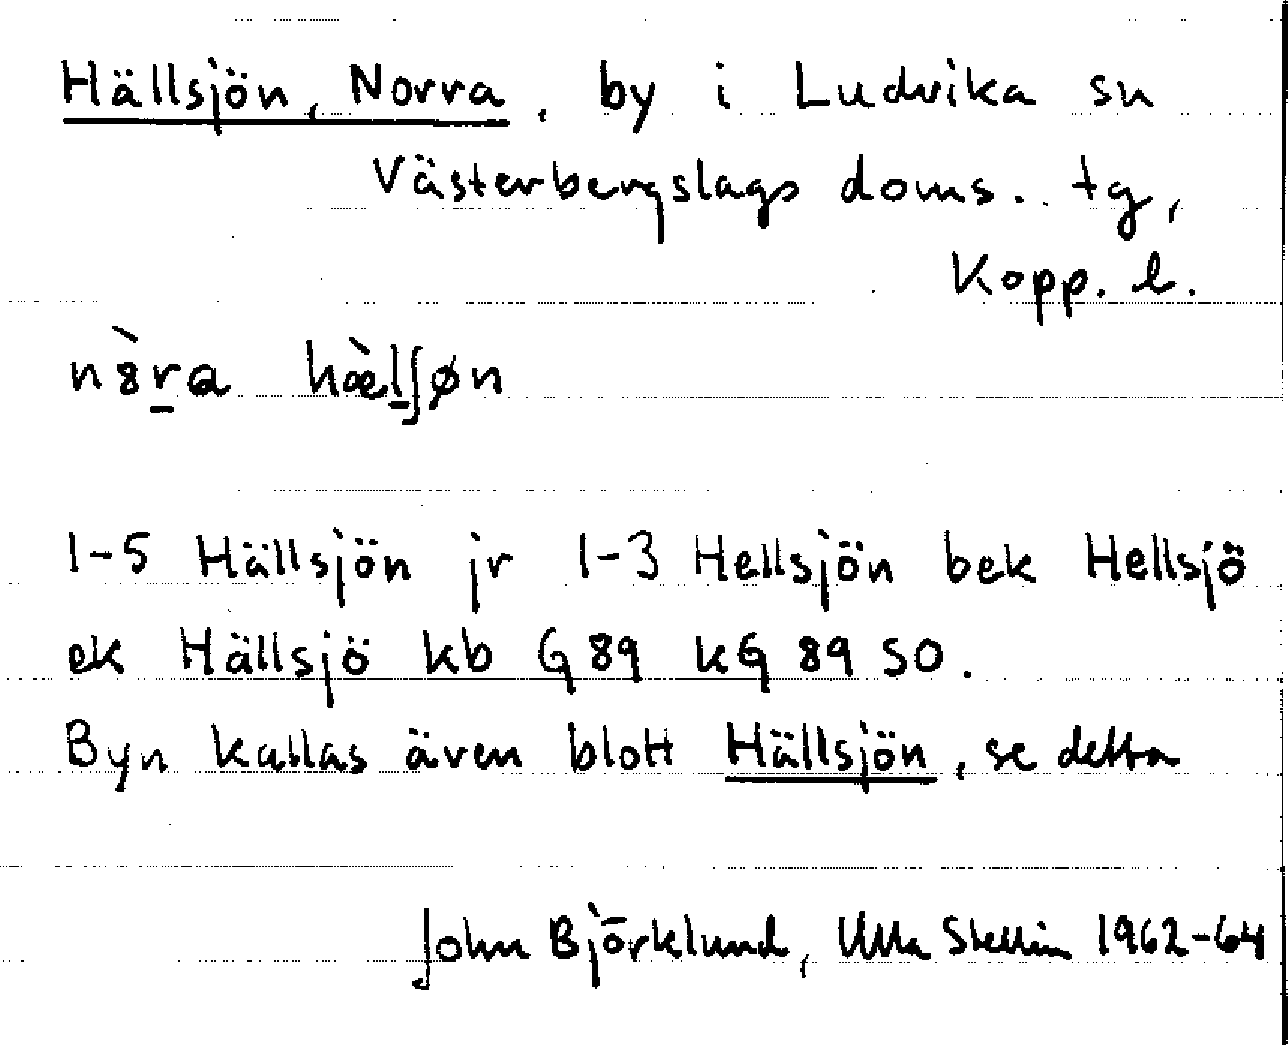 Hällsjön, Norra, by i Ludvika sn
Västerbergslags doms. tg,
Kopp. l.
n8̀r̲a hæ̀l̲ʃøn
1-5 Hällsjön jr 1-3 Hellsjön bek Hellsjö
ek Hällsjö kb G 89 kG 89 SO.
Byn kallas även blott Hällsjön, se detta
John Björklund, Ulla Stellin 1962-64